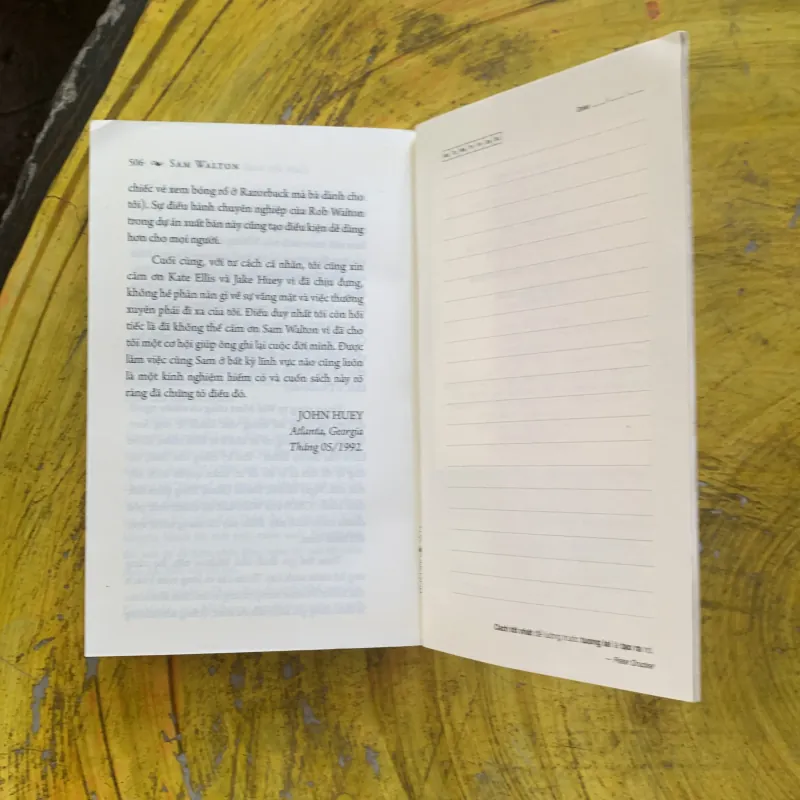 506 SAM WALTON
chiếc vé xem bóng rổ ở Razorback mà bà dành cho
tôi). Sự điều hành chuyên nghiệp của Rob Walton
trong dự án xuất bản này cũng tạo điều kiện dễ dàng
hơn cho mọi người.
Cuối cùng, với tư cách cá nhân, tôi cũng xin
cảm ơn Kate Ellis và Jake Huey vì đã chịu đựng,
không hề phàn nàn gì về sự vắng mặt và việc thường
xuyên phải đi xa của tôi. Điều duy nhất tôi còn hối
tiếc là đã không thể cảm ơn Sam Walton vì đã cho
tôi một cơ hội giúp ông ghi lại cuộc đời mình. Được
làm việc cùng Sam ở bất kỳ lĩnh vực nào cũng luôn
là một kinh nghiệm hiếm có và cuốn sách này rõ
ràng đã chứng tỏ điều đó.
JOHN HUEY
Atlanta, Georgia
Tháng 05/1992.
Date:
Cách tốt nhất để lường trước tương lai là tạo ra nó.
— Peter Drucker